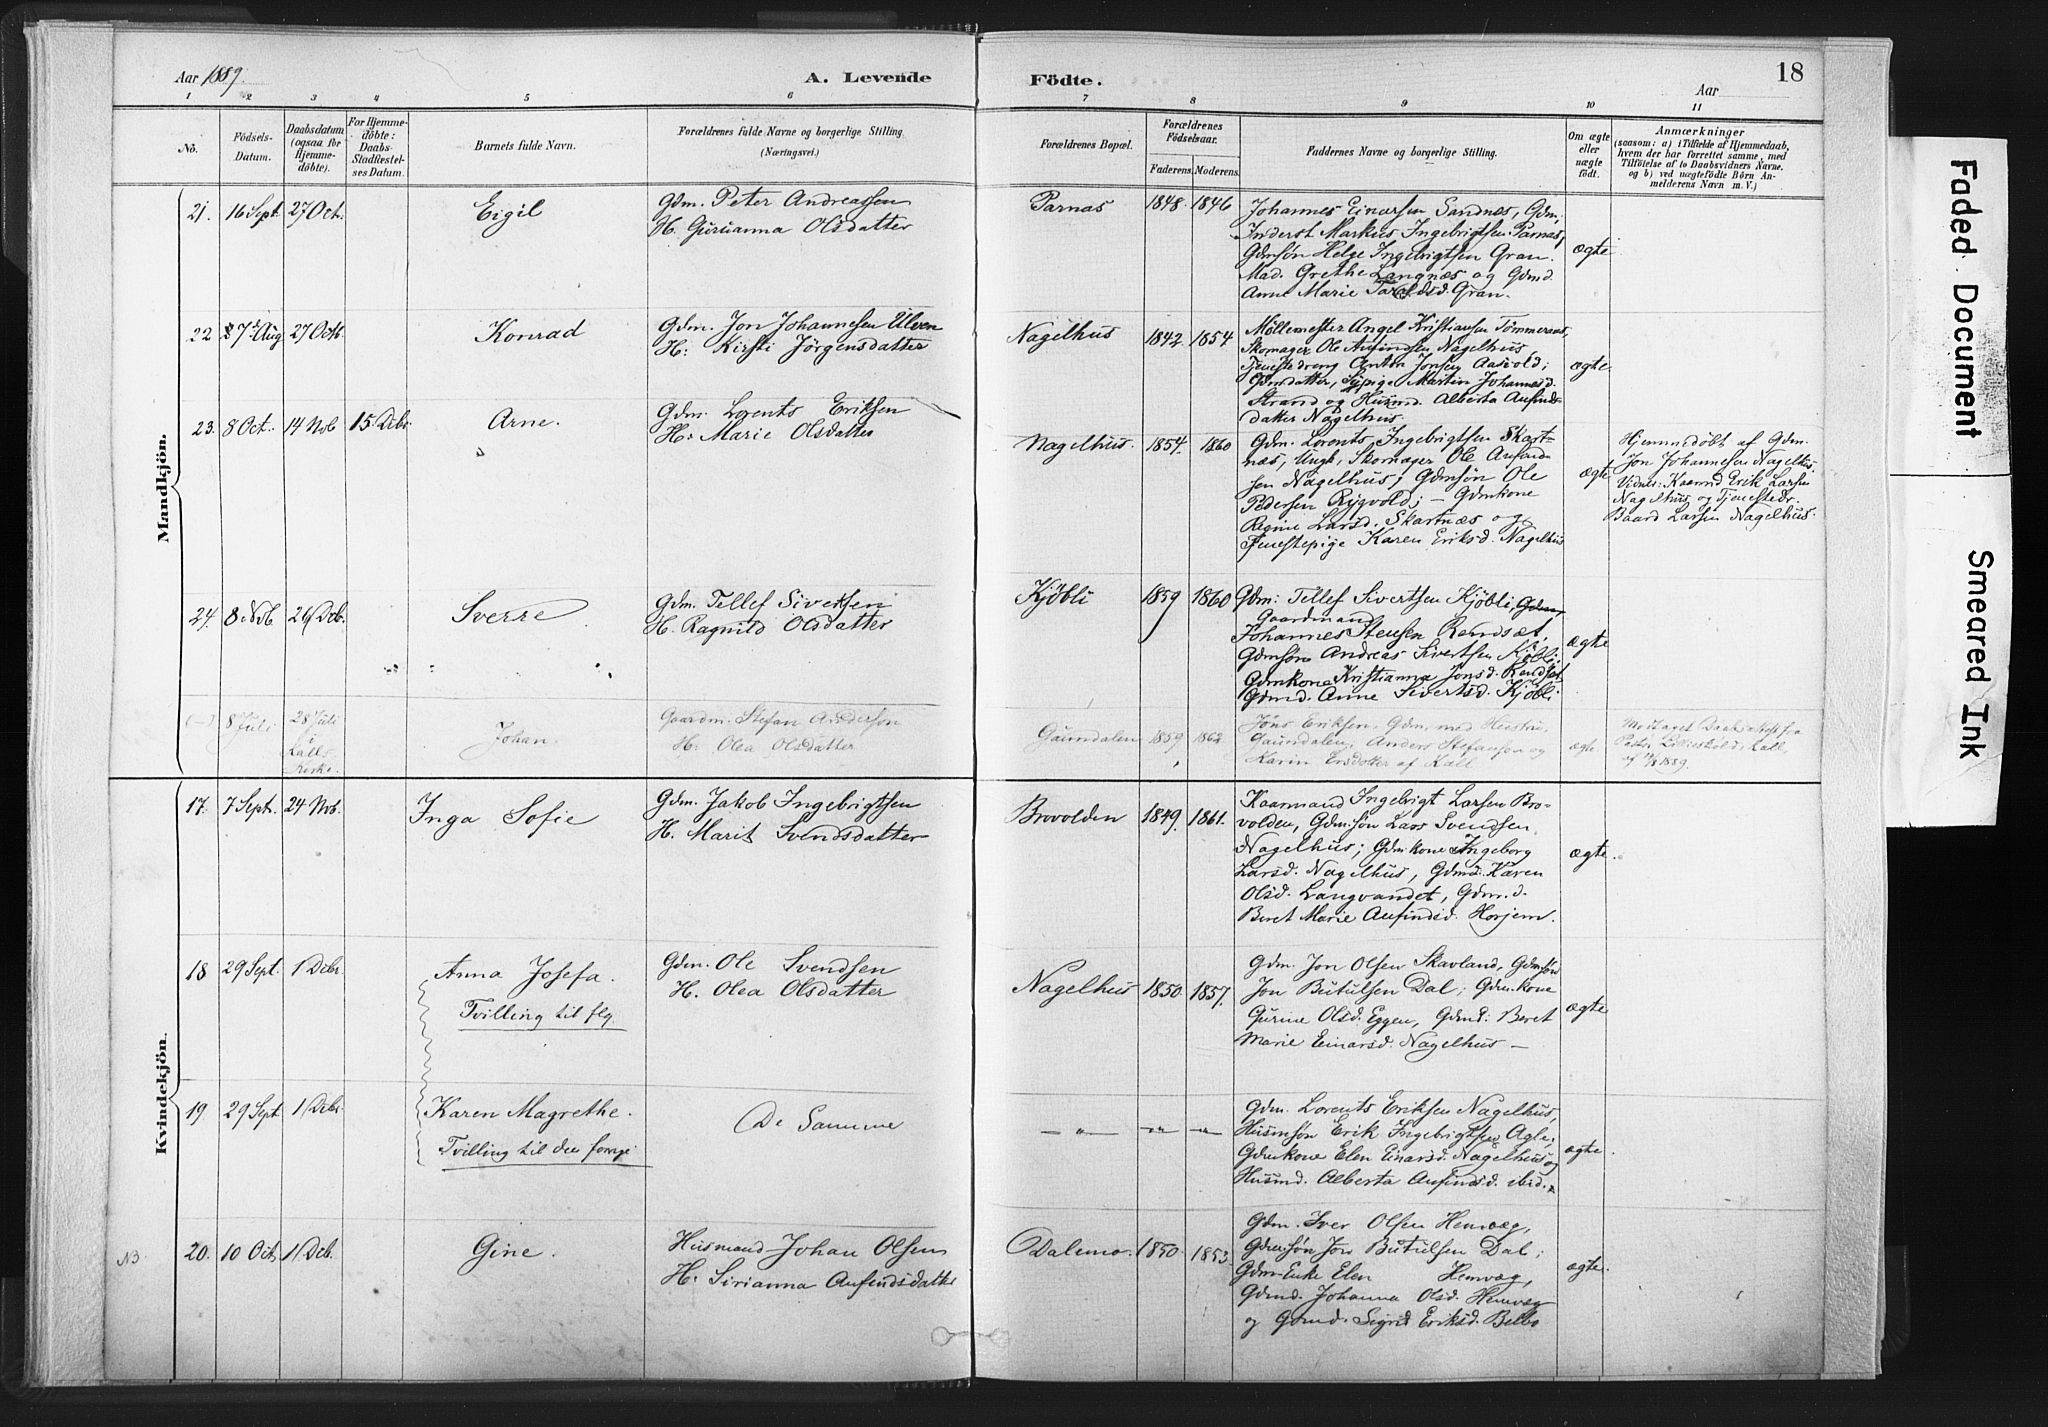 Aar 1889.
A. Levende
Födte.
18
Aar
1 2 3 4 5 6 7 8 9 10 11
No.
Födsels-Datum.
Daabsdatum (ogsaa for Hjemmedöbte).
For Hjemmedöbte: Daabs-Stadfæstelses Datum.
Barnets fulde Navn.
Forældrenes fulde Navne og borgerlige Stilling. (Næringsvei.)
Forældrenes Bopæl.
Forældrenes Födselsaar.
Faderens. Moderens.
Faddernes Navne og borgerlige Stilling.
Om ægte eller uægte födt.
Anmærkninger
(saasom: a) i Tilfælde af Hjemmedaab, hvem der har forrettet samme, med Tilföielse af to Daabsvidners Navne, og b) ved uægtefödte Börn Anmelderens Navn m. V.)
Mandkjön.
21. 16 Sept. 27 Oct. Eigil
Gdm. Peter Andreassen
H. Guruanna Olsdatter
Parnas 1848. 1846
Johannes Einarsen Sandnæs, Gdm.
Inderst Markus Ingebrigtsen Parnas,
Gdmsøn Helge Ingebrigtsen Gran.
Mad. Grethe Langnæs og Gdmd.
Anne Marie Taraldsd. Gran.
ægte
22 27 Aug 27 Octb. Konrad
Gdm. Jon Johannesen Ulven
H: Kirsti Jörgensdatter
Nagelhus 1842. 1854
Möllemester Angel Kristiansen Tømmeraas,
Skomager Ole Anfindsen Nagelhus
Tjenestedreng Anton Jonsen Aasvold;
Gdmdatter, Martin Johannesd.
Strand og Husmd. Alberta Anfinds-
datter Nagelhus.
ægte
23. 8 Oct. 14 Nvb 15 Debr. Arne.
Gdm. Lorents Eriksen
H: Marie Olsdatter
Nagelhus. 1854. 1860
Gdm. Lorents Ingebrigtsen Skart-
næs, Ungk. Skomager Ole Anfind-
sen Nagelhus, Gdmsøn Ole
Pedersen Rygvold; — Gdmkone
Regine Larsd. Skartnæs og
Tjenestepige Karen Eriksd. Nagelhus
ægte
Hjemmedøbt af Gdm.
Jon Johannesen Nagelhus.
Vidner: Kaarmd Erik Larsen
Nagelhus og Tjenestedr.
Baard Larsen Nagelhus.
24. 8 Nvb. 26 Deb. Sverre
Gdm. Tellef Sivertsen
H. Ragnild Olsdatter
Kjöbli 1859 1860
Gdm: Tellef Sivertsen Kjöbli, Gdm,
Gaardmand
Johannes Stensen Rendsæt,
Gdmsøn Andreas Sivertsen Kjöbli,
Gdmkone Kristianna Jonsd. Rendsæt
Gdmd. Anne Sivertsd. Kjöbli
ægte
(—) 8 Juli 28 Juli i Kalls Kirke. Johan.
Gaardm. Stefan Anderson
H. Olea Olsdatter
Gaundalen 1859 1862
Jöns Eriksen, Gdm. med Hustru,
Gaundalen, Anders Stefanson og
Karin Ersdotter af Kall
ægte
Modtaget Daabsattest fra
Pastor Kall
af 1889.
Kvindekjön.
17. 7 Sept. 24 Nvb. Inga Sofie
Gdm. Jakob Ingebrigtsen
H. Marit Svendsdatter
Brovolden 1849. 1861.
Kaarmand Ingebrigt Larsen Bro-
volden, Gdmsøn Lars Svendsen
Nagelhus; Gdmkone Ingeborg
Larsd. Nagelhus, Gdmd. Karen
Olsd. Langvandet, Gdm.d.
Beret Marie Anfindsd. Horjem.
ægte.
18 29 Sept. 1 Debr Anna Josefa.
Tvilling til flg.
Gdm. Ole Svendsen
H. Olea Olsdatter
Nagelhus 1850 1857.
Gdm. Jon Olsen Skavland, Gdmsøn
Jon Butulsen Dal; Gdmkone
Gurine Olsd. Eggen, Gdmd: Beret
Marie Einarsd. Nagelhus —
ægte
19 29 Sept. 1 Debr. Karen Magrethe.
Tvilling til den forrige
De Samme
— " — — " — — " —
Gdm. Lorents Eriksen Nagelhus,
Husmsøn Erik Ingebrigtsen Agle;
Gdmkone Elen Einarsd. Nagelhus og
Husmd. Alberta Anfindsd. ibid.
ægte.
NB. 20. 10 Oct. 1 Deb. Gine.
Husmand Johan Olsen
H. Sirianna Anfindsdatter
Dalemo. 1850. 1853
Gdm. Iver Olsen Hemvæg,
Gdmsøn Jon Butulsen Dal;
Gdm-Enke Elen Hemvæg,
Gdmd. Johanna Olsd. Hemvæg
og Gdmd. Sigrid Eriksd. Belbo
ægte.
Faded Document
Smeared Ink